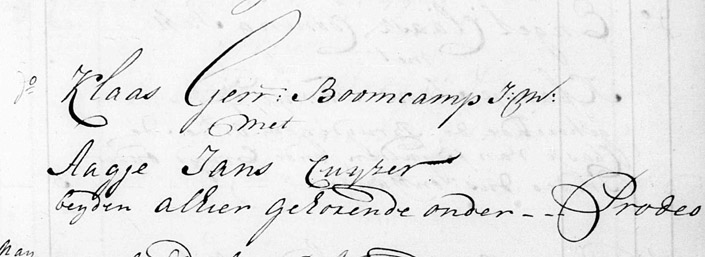 do Klaas Gerr: Boomcamp J:M:
met
Aagje Jans Cuyper
beyden alhier gehorende onder -- Prodeo
May